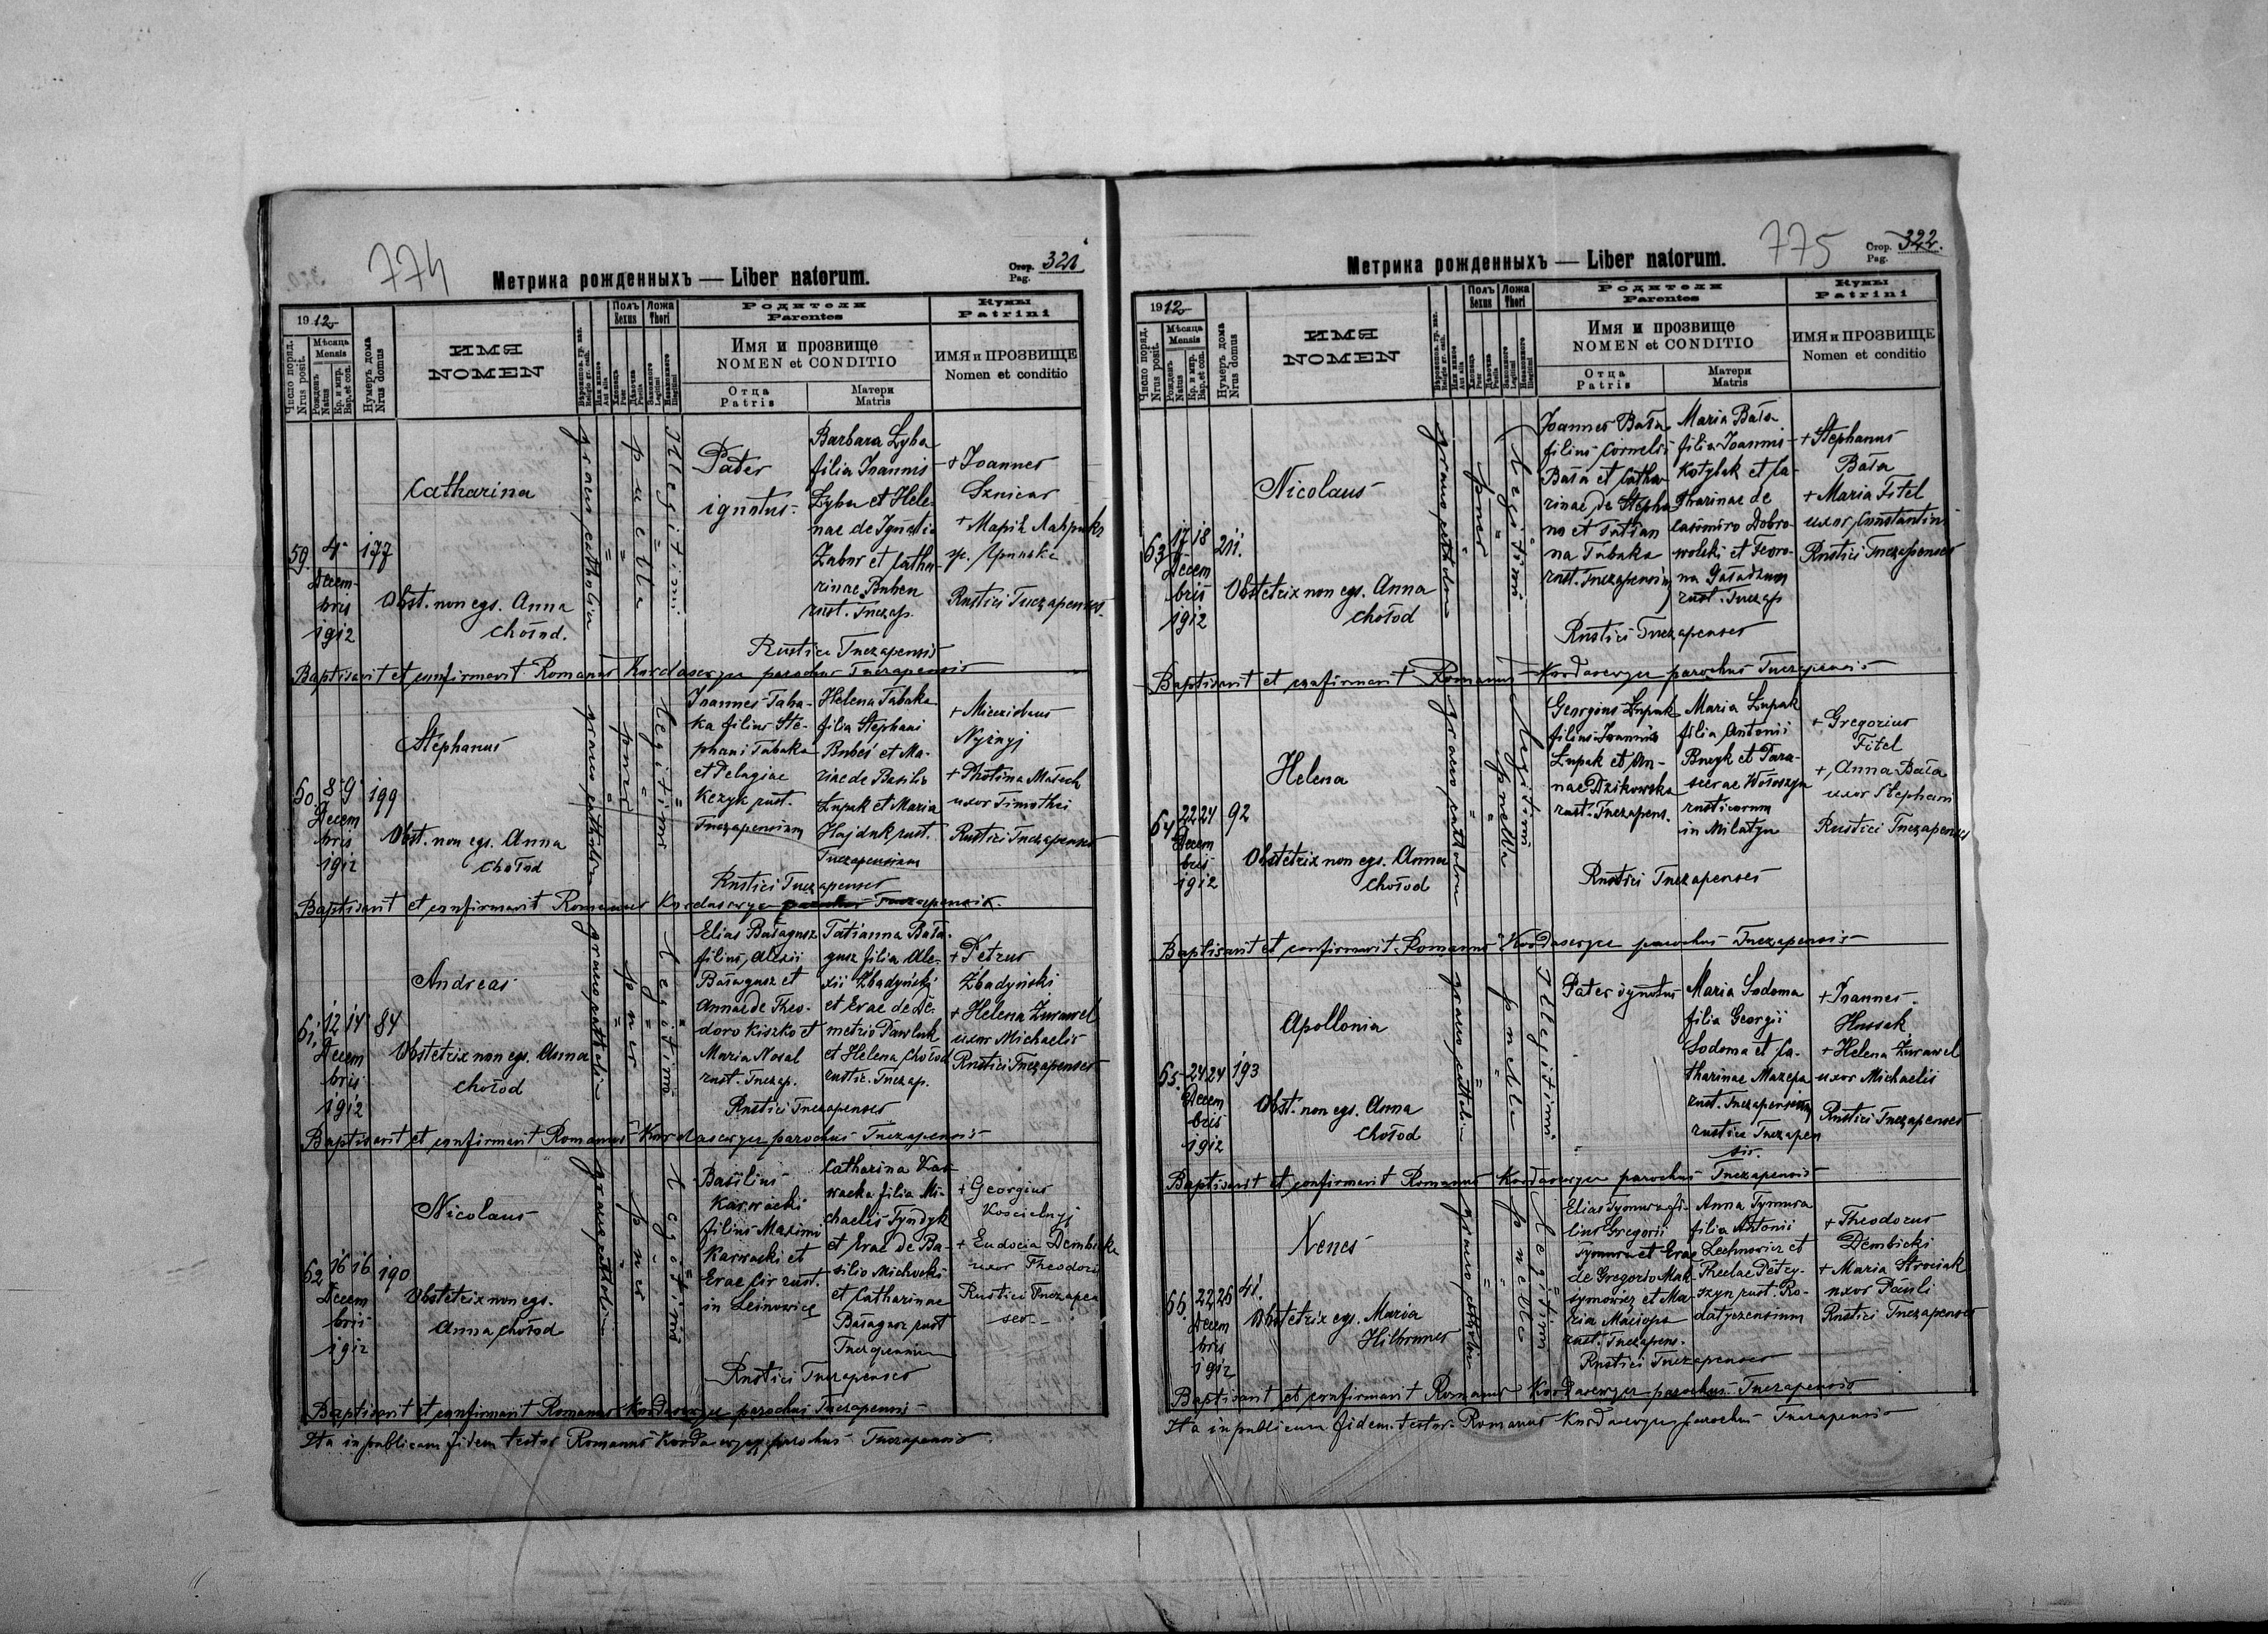 774
Метрика рожденныхъ — Liber natorum.
Стор. Pag. 321
1912
Число поряд. Nrus posit.
Мѣсяца Mensis
Рожденъ Natus
Кр. и мѵр. Bap. et con.
Нумеръ дома Nrus domus
ИМЯ
NOMEN
Полъ Sexus
Ложа Thori
Родители
Parentes
Имя и прозвище
NOMEN et CONDITIO
Отца
Patris
Матери
Matris
Кумы
Patrini
ИМЯ и ПРОЗВИЩЕ
Nomen et conditio
59. 4 Decembris 1912
177
Catharina
Obst. non egs. Anna
Chołod.
graeco catholica
puella
Illegitimi
Pater
ignotus
Barbara Zyba
filia Ioannis
Zyba et Hele-
nae de Ignatio
Zabor et Catha-
rinae Buben
rust. Tuczap.
+ Ioannes
Sznicar
Rustici Tuczapenses
Rustica Tuczapensis
Baptisavit et confirmavit Romanus Kordasewycz parochus Tuczapensis
60. 8 9 Decembris 1912
199
Stephanus
Obst. non egs. Anna
Chołod
graeco catholica
puer
legitimi
Ioannes Taba-
ka filius Ste-
phani Tabaka
et Pelagiae
Kezyk rust.
Tuczapensium
Helena Tabaka
filia Stephani
Bubeś et Ma-
riae de Basilio
Łupak et Maria
Hajduk rust.
Tuczapensium
Nyżnyj
uxor Timothei
Rustici Tuczapenses
Rustici Tuczapenses
Baptisavit et confirmavit Romanus Kordasewycz parochus Tuczapensis.
61. 12 14 Decembris 1912
84
Andreas
Obstetrix non egs. Anna
Chołod
graeco catholica
puer
legitimi
Elias Bałagusz
filius Alexii
Bałagusz et
Annae de Theo-
doro Kiszko et
Maria Nosal
rust. Tuczap.
Tatianna Bała-
gusz filia Ale-
xii Zbadyński
et Evae de De-
metrio Pawluk
et Helena Chołod
rustic. Tuczap.
+ Petrus
Zbadyński
+ Helena Żurawel
uxor Michaelis
Rustici Tuczapenses
Rustici Tuczapenses
Baptisavit et confirmavit Romanus Kordasewycz parochus Tuczapensis
62 16 16 Decembris 1912
190
Nicolaus
Obstetrix non egs.
Anna Chołod
graeco catholica
puer
legitimi
Basilius
Karwacki
filius Maximi
Karwacki et
Evae Cir rust.
in Leśnowice
Catharina Kar-
wacka filia Mi-
chaelis Tyndyk
et Evae de Ba-
silio Michocki
et Catharinae
Bałagusz rust
Tuczapensium
+ Georgius
Kościelnyj
+ Eudocia Dembicka
uxor Theodori
Rustici Tuczapen
ses
Rustici Tuczapenses
Baptisavit et confirmavit Romanus Kordasewycz parochus Tuczapensis
Ita in publicam fidem testor Romanus Kordasewycz parochus Tuczapensis
775
Метрика рожденныхъ — Liber natorum.
Стор. Pag. 322.
1912
Число поряд. Nrus posit.
Мѣсяца Mensis
Рожденъ Natus
Кр. и мѵр. Bap. et con.
Нумеръ дома Nrus domus
ИМЯ
NOMEN
Полъ Sexus
Ложа Thori
Родители
Parentes
Имя и прозвище
NOMEN et CONDITIO
Отца
Patris
Матери
Matris
Кумы
Patrini
ИМЯ и ПРОЗВИЩЕ
Nomen et conditio
63 17 18 Decembris 1912
211.
Nicolaus
Obstetrix non egs. Anna
Chołod
graeco catholica
puer
Legitimi
Joannes Bała
filius Cornelii
Bała et Catha-
rinae de Stepha-
no et Tatian
na Tabaka
rust. Tuczapensium
Maria Bała
filia Ioannis
Kotylak et Ca-
tharinae de
Casimiro Dobro-
wolski et Fewro-
na
rust. Tuczap
+ Stephanus
Bała
+ Maria Fitel
uxor Constantini
Rustici Tuczapenses
Rustici Tuczapenses
Baptisavit et confirmavit Romanus Kordasewycz parochus Tuczapensis
64 22 24 Decembris 1912
92
Helena
Obstetrix non egs. Anna
Chołod
graeco catholica
puella
Legitimi
Georgius Łupak
filius Ioannis
Łupak et An-
nae Dzikowska
rust. Tuczapens.
Maria Łupak
filia Antonii
Buzyk et Para-
scevae Wołoszyn
rusticorum
in Milatyn
+ Gregorius
Fitel
+ Anna Bała
uxor Stephani
Rustici Tuczapenses
Rustici Tuczapenses
Baptisavit et confirmavit Romanus Kordasewycz parochus Tuczapensis
65. 24 24 Decembris 1912
193
Apollonia
Obst. non egs. Anna
Chołod
graeco catholica
puella
Illegitimi
Pater ignotus
Maria Sodoma
filia Georgii
Sodoma et Ca-
tharinae Mazepa
rust. Tuczapensium
rustica Tuczapen
sis.
+ Ioannes
Hussak
+ Helena Żurawel
uxor Michaelis
Rustici Tuczapenses
Baptisavit et confirmavit Romanus Kordasewycz parochus Tuczapensis
66. 22 26 Decembris 1912
41.
Xenes
Obstetrix egs. Maria
Hilbrunner
graeco catholica
puella
Legitimi
Elias Tymura fi-
lius Gregorii
Tymura et Evae
de Gregorio Mak-
symowicz et Ma-
ria Maciopa
rust. Tuczapens.
Anna Tymura
filia Antonii
Lechnowicz et
Theclae Petry-
szyn rust. Ro-
datyczensium
+ Theodorus
Dembicki
+ Maria Strociak
uxor Pauli
Rustici Tuczapenses
Rustici Tuczapenses
Baptisavit et confirmavit Romanus Kordasewycz parochus Tuczapensis
Ita in publicam fidem testor Romanus Kordasewycz parochus Tuczapensis